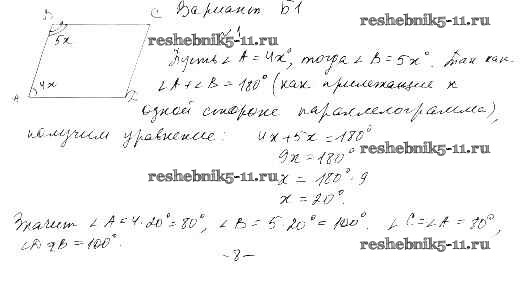 Вариант Б1
B
C
5x
reshebnik5-11.ru
№1
Пусть ∠A = 4x°, тогда ∠B = 5x°. Так как
4x
A
∠A + ∠B = 180° (как прилежащие к
одной стороне параллелограмма),
получим уравнение: 4x + 5x = 180°
9x = 180°
reshebnik5-11.ru
reshebnik5-11.ru
x = 180° : 9
x = 20°.
Значит ∠A = 4·20° = 80°, ∠B = 5·20° = 100°. ∠C = ∠A = 80°,
= ∠B = 100°.
reshebnik5-11.ru
-8-